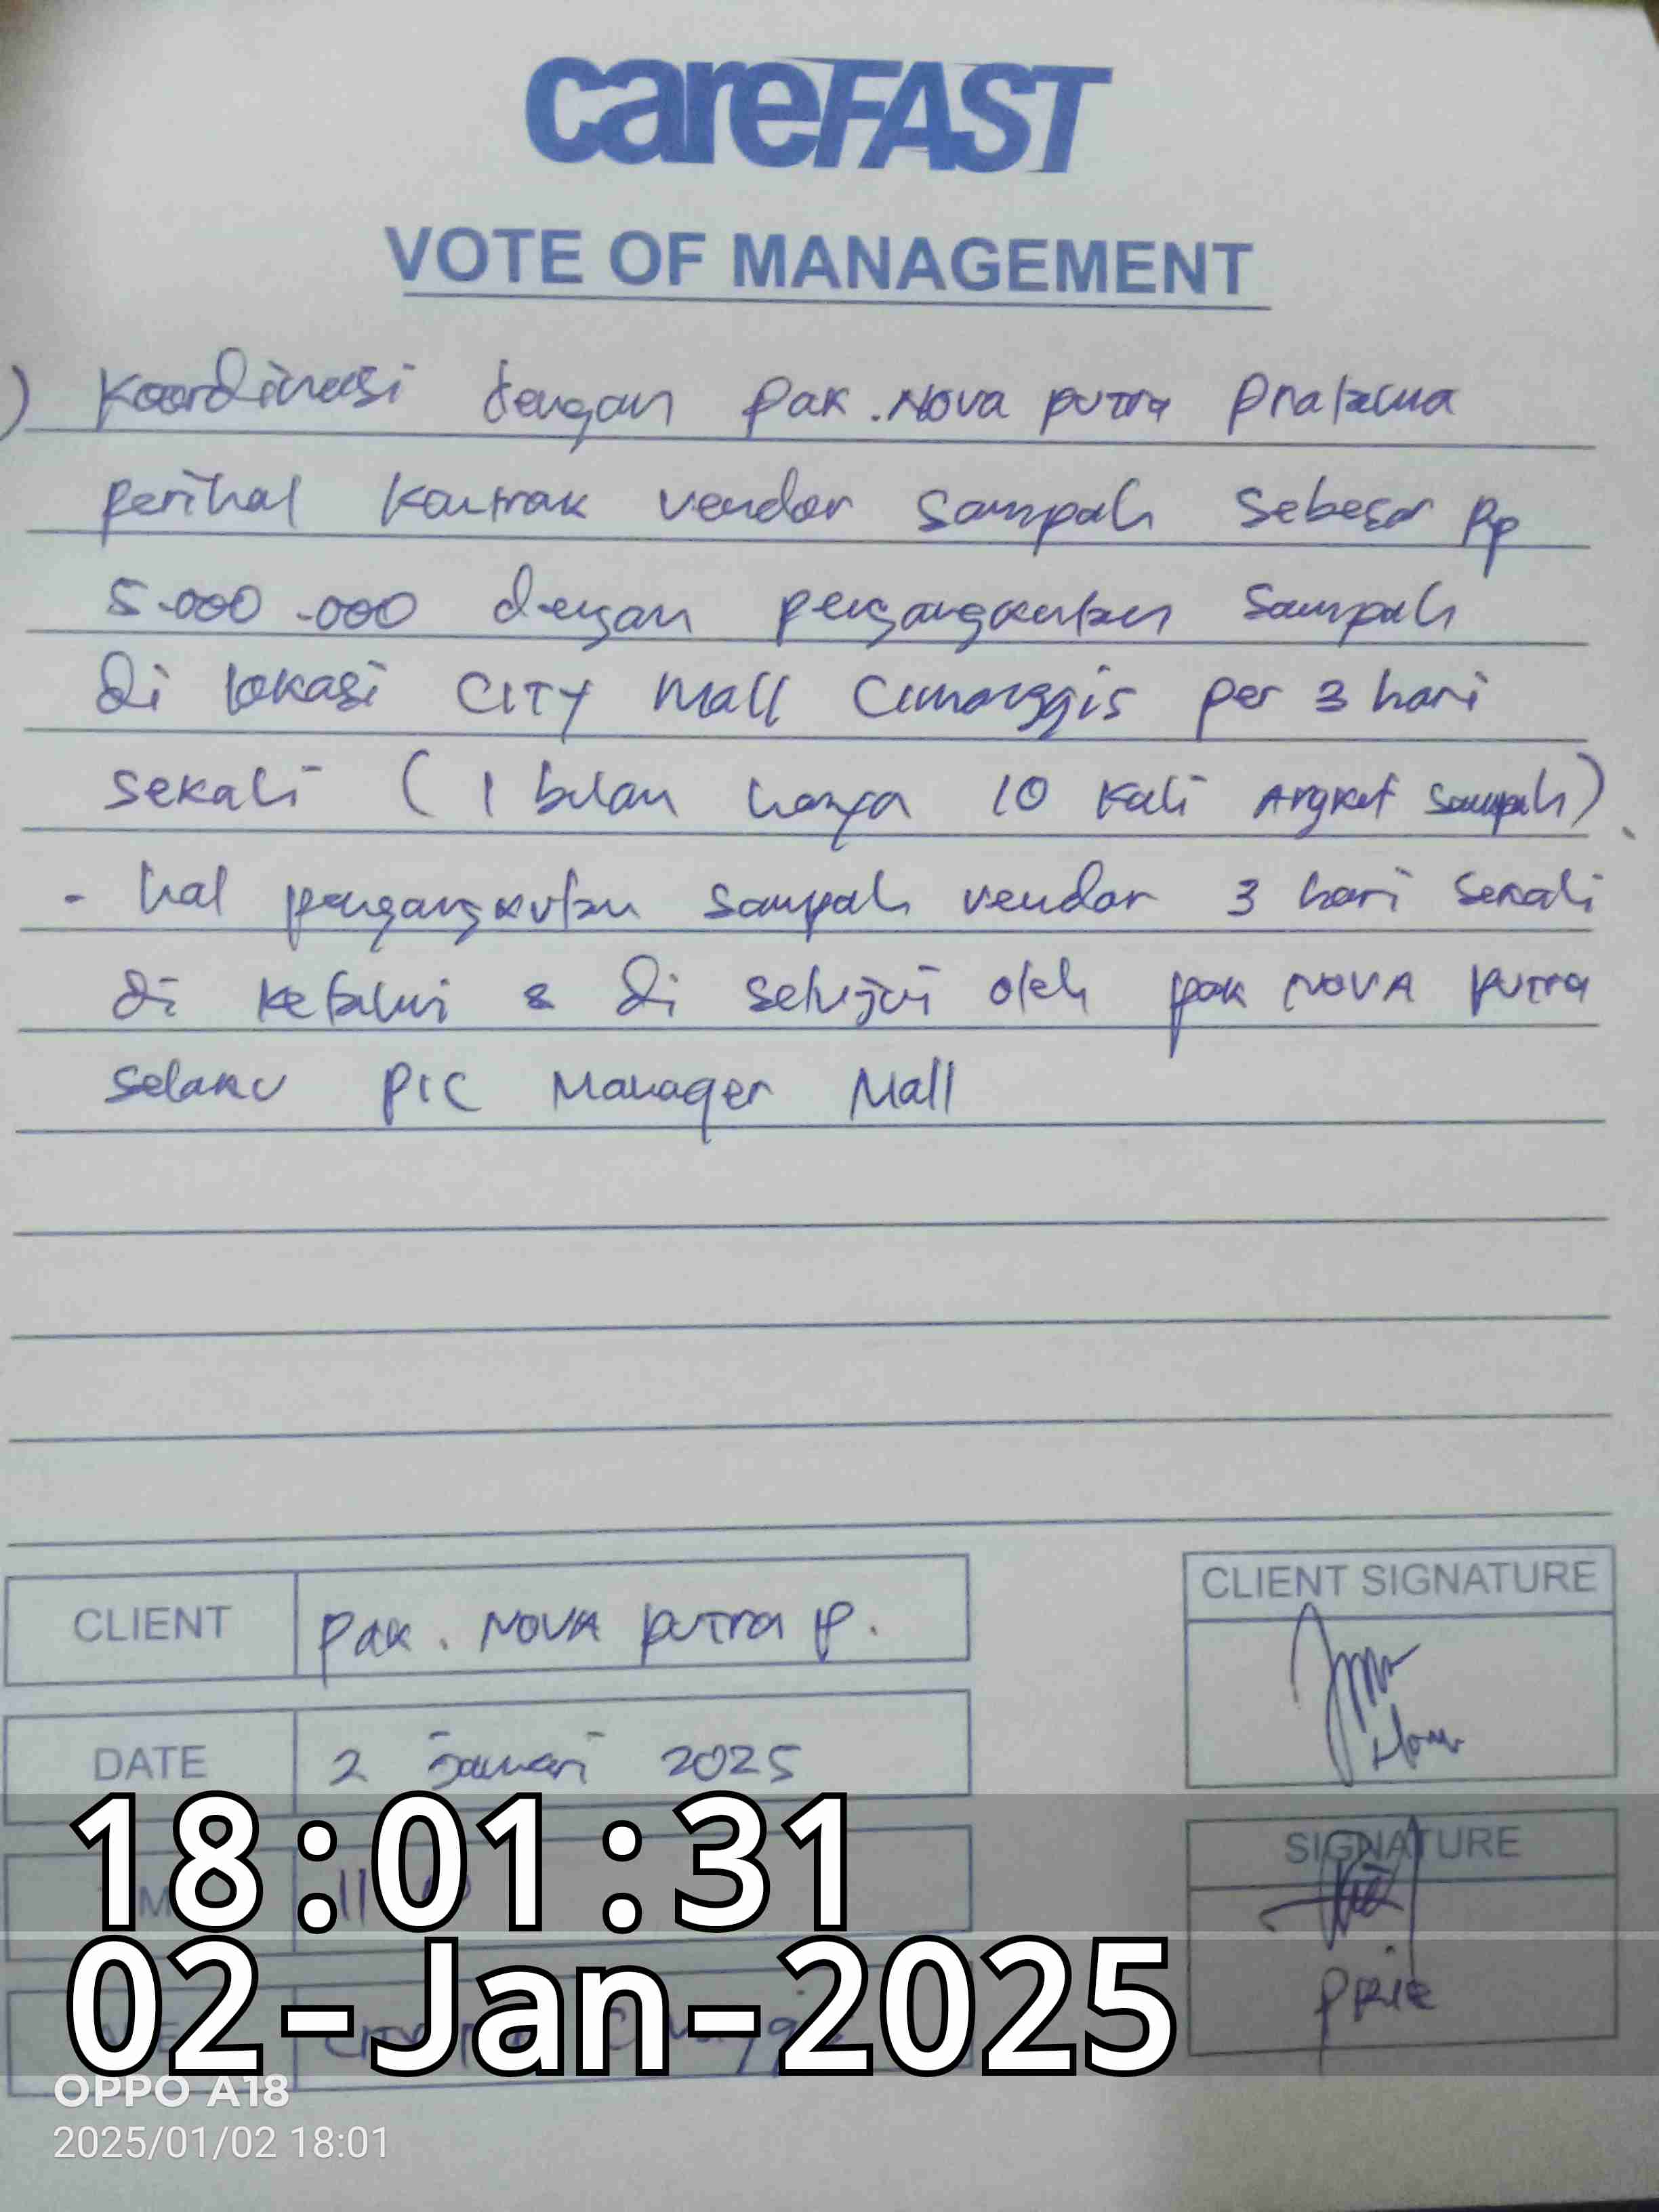 careFAST
VOTE OF MANAGEMENT
) Koordinasi dengan pak. Nova putra Pratama
perihal kontrak vendor Sampah Sebesar Rp
5.000.000 dengan pengangkutan Sampah
di lokasi CITY Mall Cimanggis per 3 hari
sekali ( 1 bulan hanya 10 kali Angkut Sampah)
- hal pengangkutan sampah vendor 3 hari sekali
di ketahui & di setujui oleh pak NOVA putra
selaku PIC Manager Mall
CLIENT pak. NOVA putra P.
CLIENT SIGNATURE
DATE 2 januari 2025
SIGNATURE
18:01:31
02-Jan-2025
OPPO A18
2025/01/02 18:01